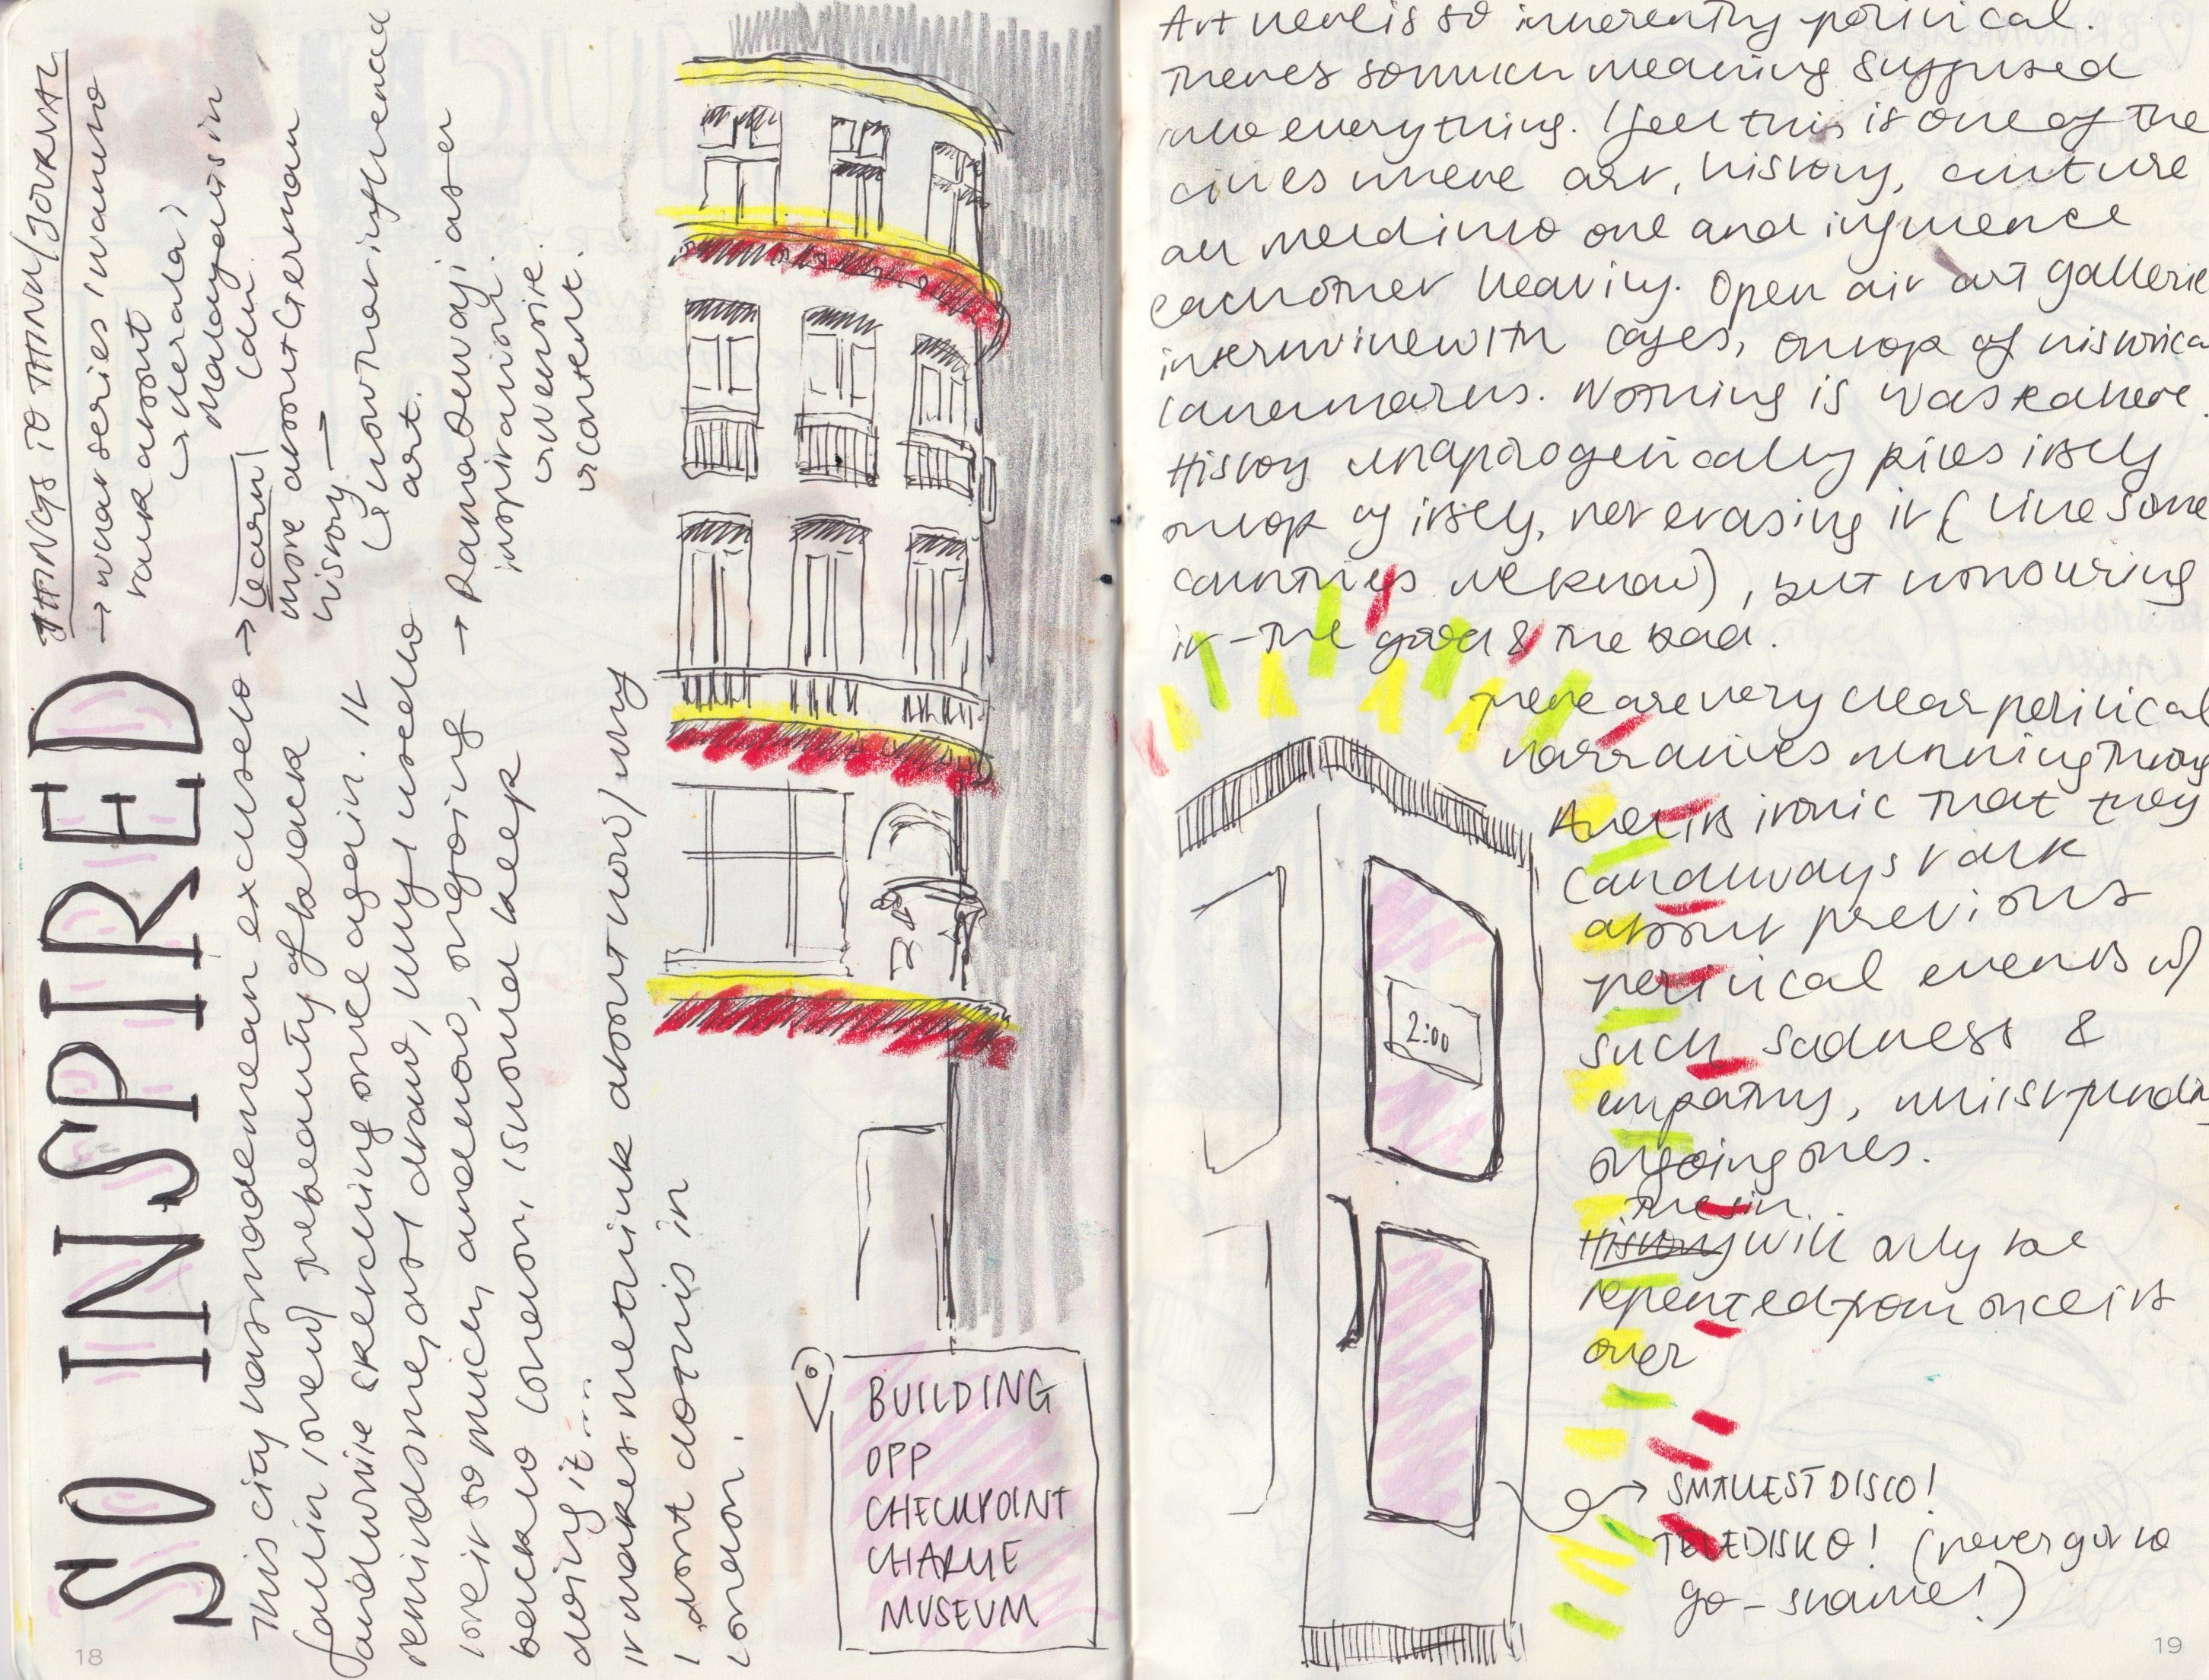 SO INSPIRED
This city has made me an excuse to
fall in love w/ the beauty of black
and white sketching once again. It
reminds me, art draw, why I used to
love it so much, and also, ongoing
back to London, I should keep
doing it....
It makes me think about how/why
I dont do this in
London.
THINGS TO THINK/JOURNAL
→ what series I want to
talk about
↳ Kerala?
Malayalis in
Ldn.
→ learn
more about German
history —
↳ how that influenced
art.
→ Ramadewaji as an
inspiration.
↳ website.
↳ content.
BUILDING
OPP
CHECKPOINT
CHARLIE
MUSEUM
18
Art here is so inherently political.
Theres so much meaning suffused
into everything. I feel this is one of the
cities where art, history, culture
all meld into one and influence
eachother heavily. Open air art gallerie
intertwine with cafes, on top of historica
landmarks. Nothing is wasted here.
History unapologetically piles itself
on top of itself, not erasing it (like some
countries we know), but honouring
it - the good & the bad.
There are very clear political
narratives running throug
And its ironic that they
can always talk
about previous
political events w/
such sadness &
empathy, whilst fundin
ongoing ones.
The sin
History will only be
repented from once it is
over
2:00
SMALLEST DISCO!
TELEDISKO! (never got to
go - shame!)
19